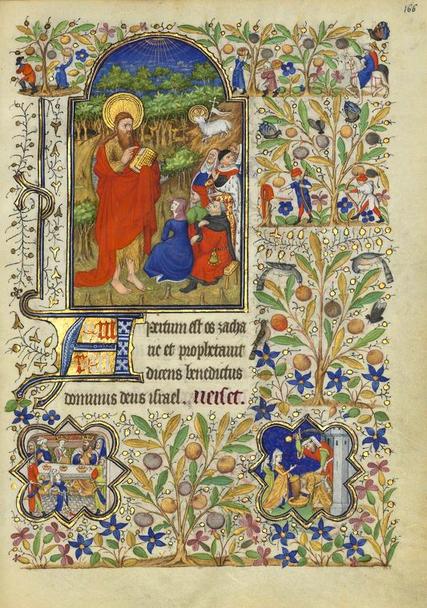 166
Apertum est os zacha
rie et prophetauit
dicens benedictus
dominus deus israel. verset.